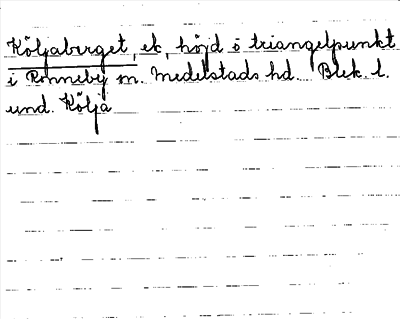 Köljaberget, ek, höjd o triangelpunkt
i Ronneby m. Medelstads hd. Blek. l.
und. Kölja